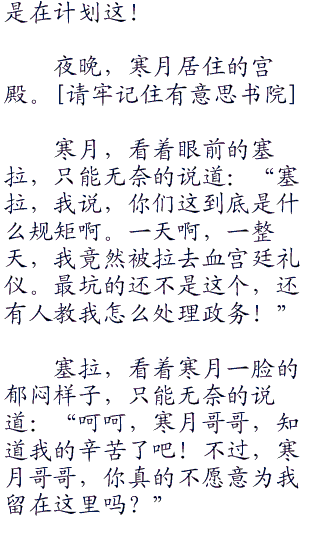 是在计划这！
夜晚，寒月居住的宫
殿。[请牢记住有意思书院]
寒月，看着眼前的塞
拉，只能无奈的说道：“塞
拉，我说，你们这到底是什
么规矩啊。一天啊，一整
天，我竟然被拉去血宫廷礼
仪。最坑的还不是这个，还
有人教我怎么处理政务！”
塞拉，看着寒月一脸的
郁闷样子，只能无奈的说
道：“呵呵，寒月哥哥，知
道我的辛苦了吧！不过，寒
月哥哥，你真的不愿意为我
留在这里吗？”